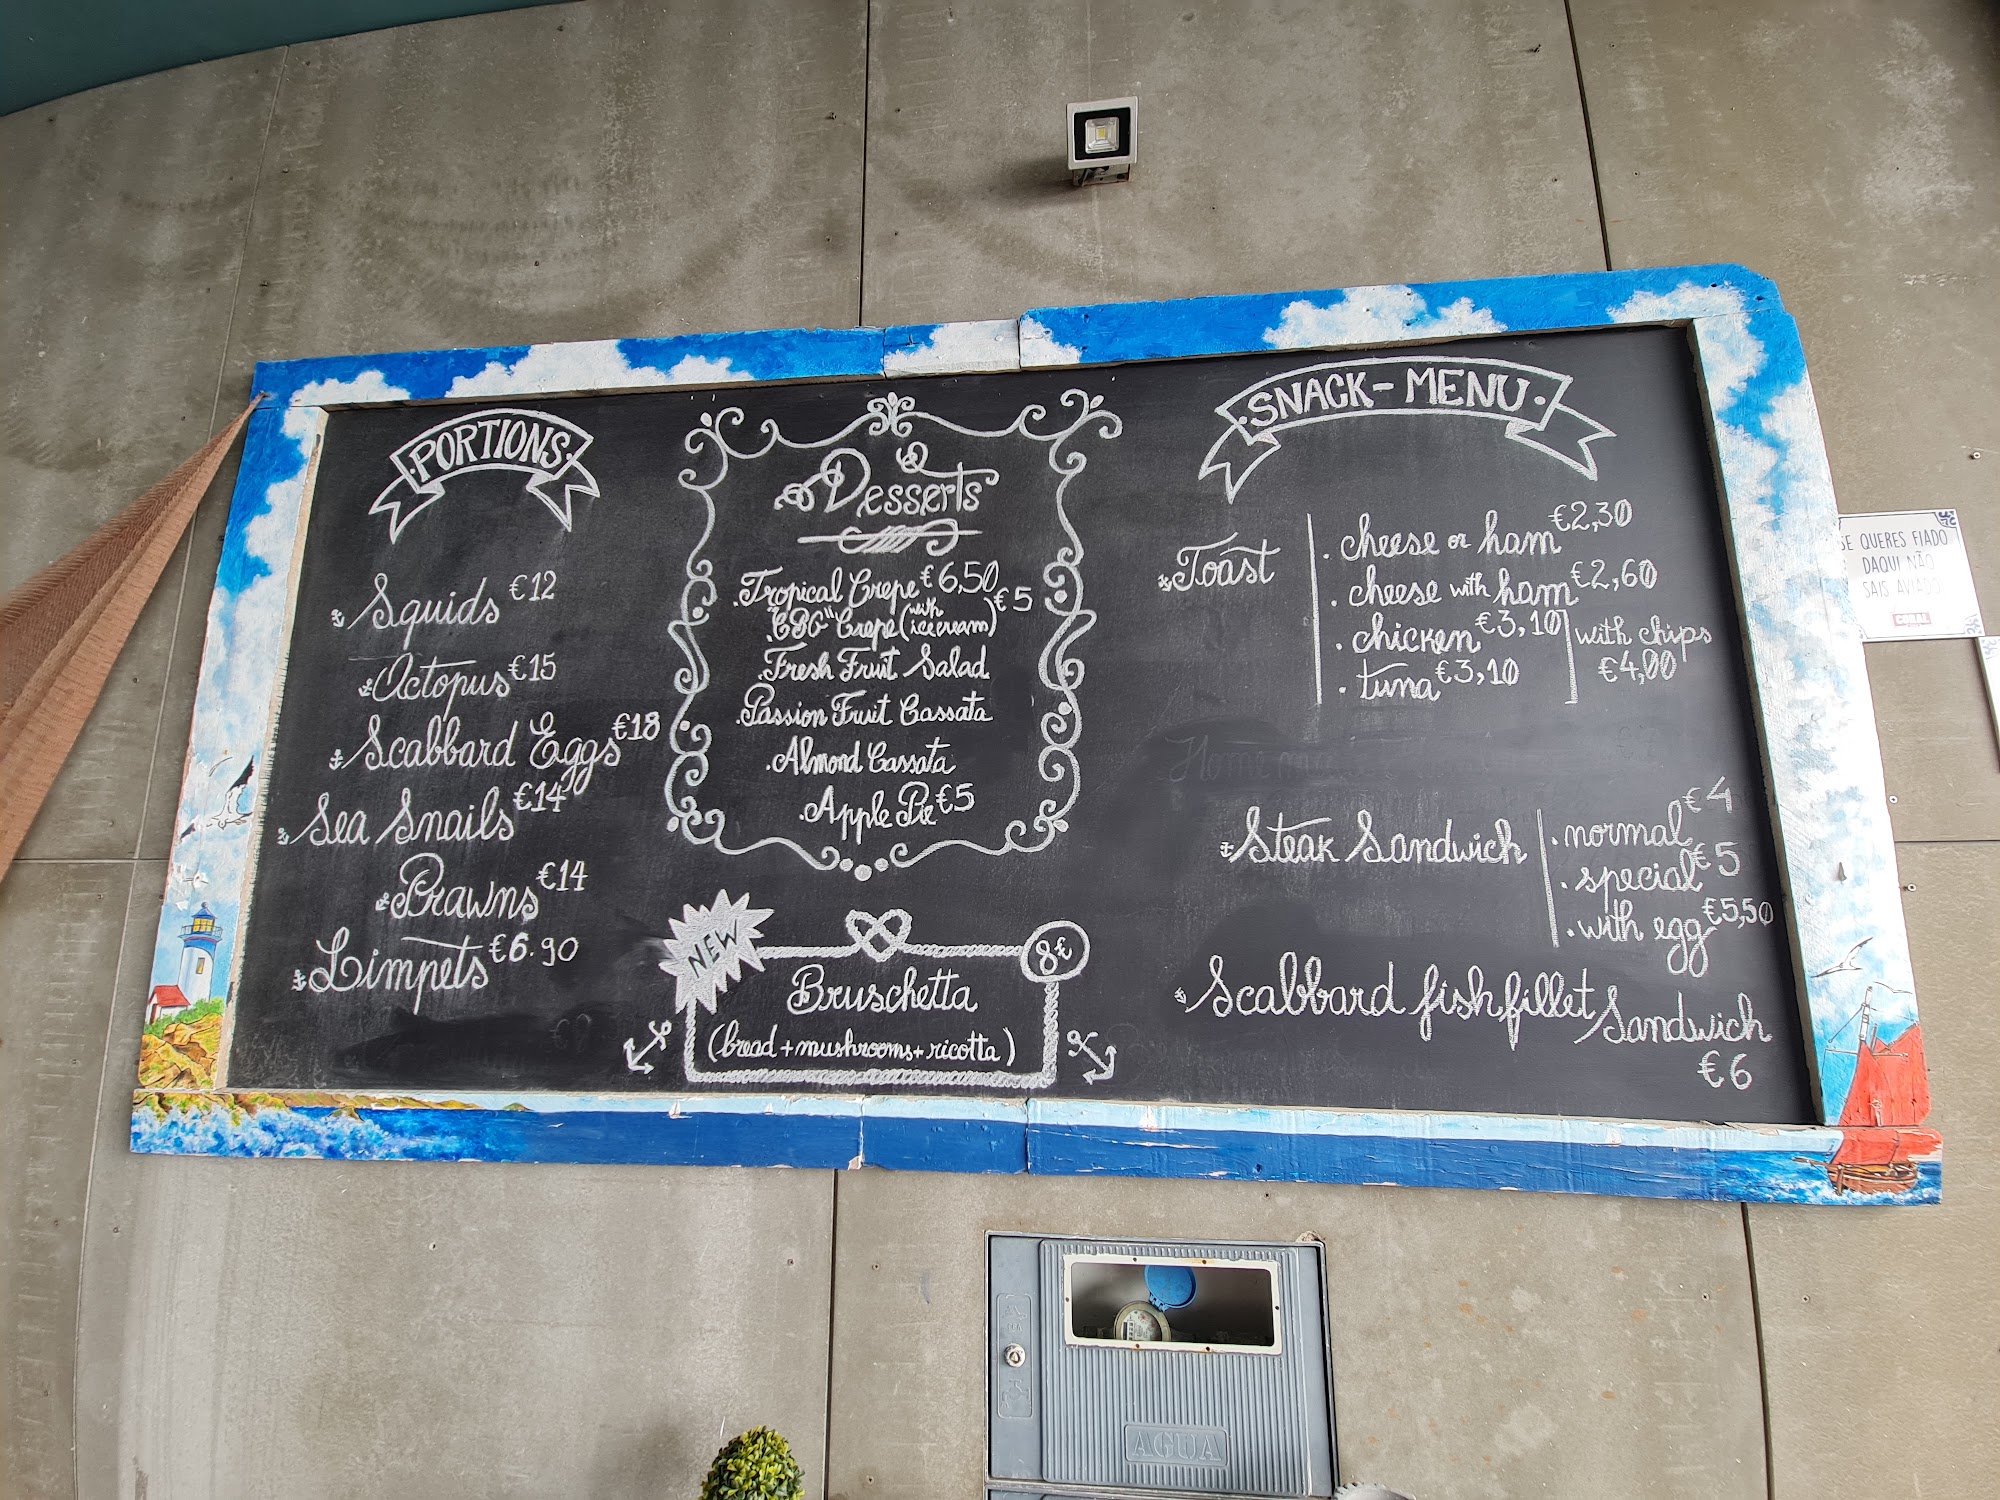 PORTIONS
Squids €12
Octopus €15
Scabbard Eggs €18
Sea Snails €14
Prawns €14
Limpets €6.90
Desserts
.Tropical Crepe €6,50
."CBG" Crepe (with icecream) €5
.Fresh Fruit Salad
.Passion Fruit Cassata
.Almond Cassata
.Apple Pie €5
NEW
8€
Bruschetta
(bread + mushrooms + ricotta)
·SNACK-MENU·
Toast
. cheese or ham €2,30
. cheese with ham €2,60
. chicken €3,10
. tuna €3,10
with chips
€4,00
Steak Sandwich
. normal €4
. special €5
. with egg €5,50
Scabbard fish fillet Sandwich
€6
SE QUERES FIADO
DAQUI NÃO
SAIS AVIADO
CORAL
AGUA